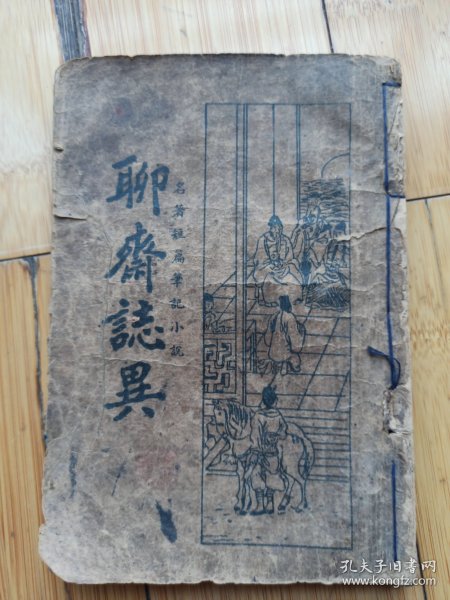 聊齋誌異
名著短篇筆記小說
孔夫子旧书网
www.kongfz.com